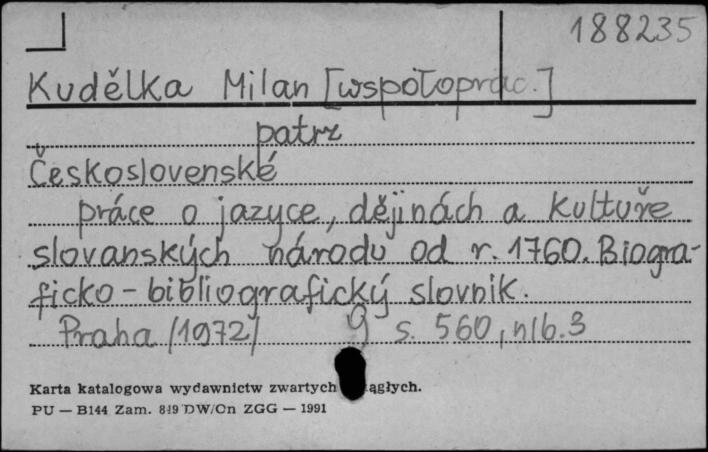 188235
Kudělka Milan [współoprac.]
patrz
Československé
práce o jazyce, dějinách a kultuře
slovanských národu od r. 1760. Biogra-
ficko-bibliografický slovnik.
Praha /1972/ 8 s. 560, nlb. 3
Karta katalogowa wydawnictw zwartych ciągłych.
PU — B144 Zam. 849 DW/Cn ZGG — 1991